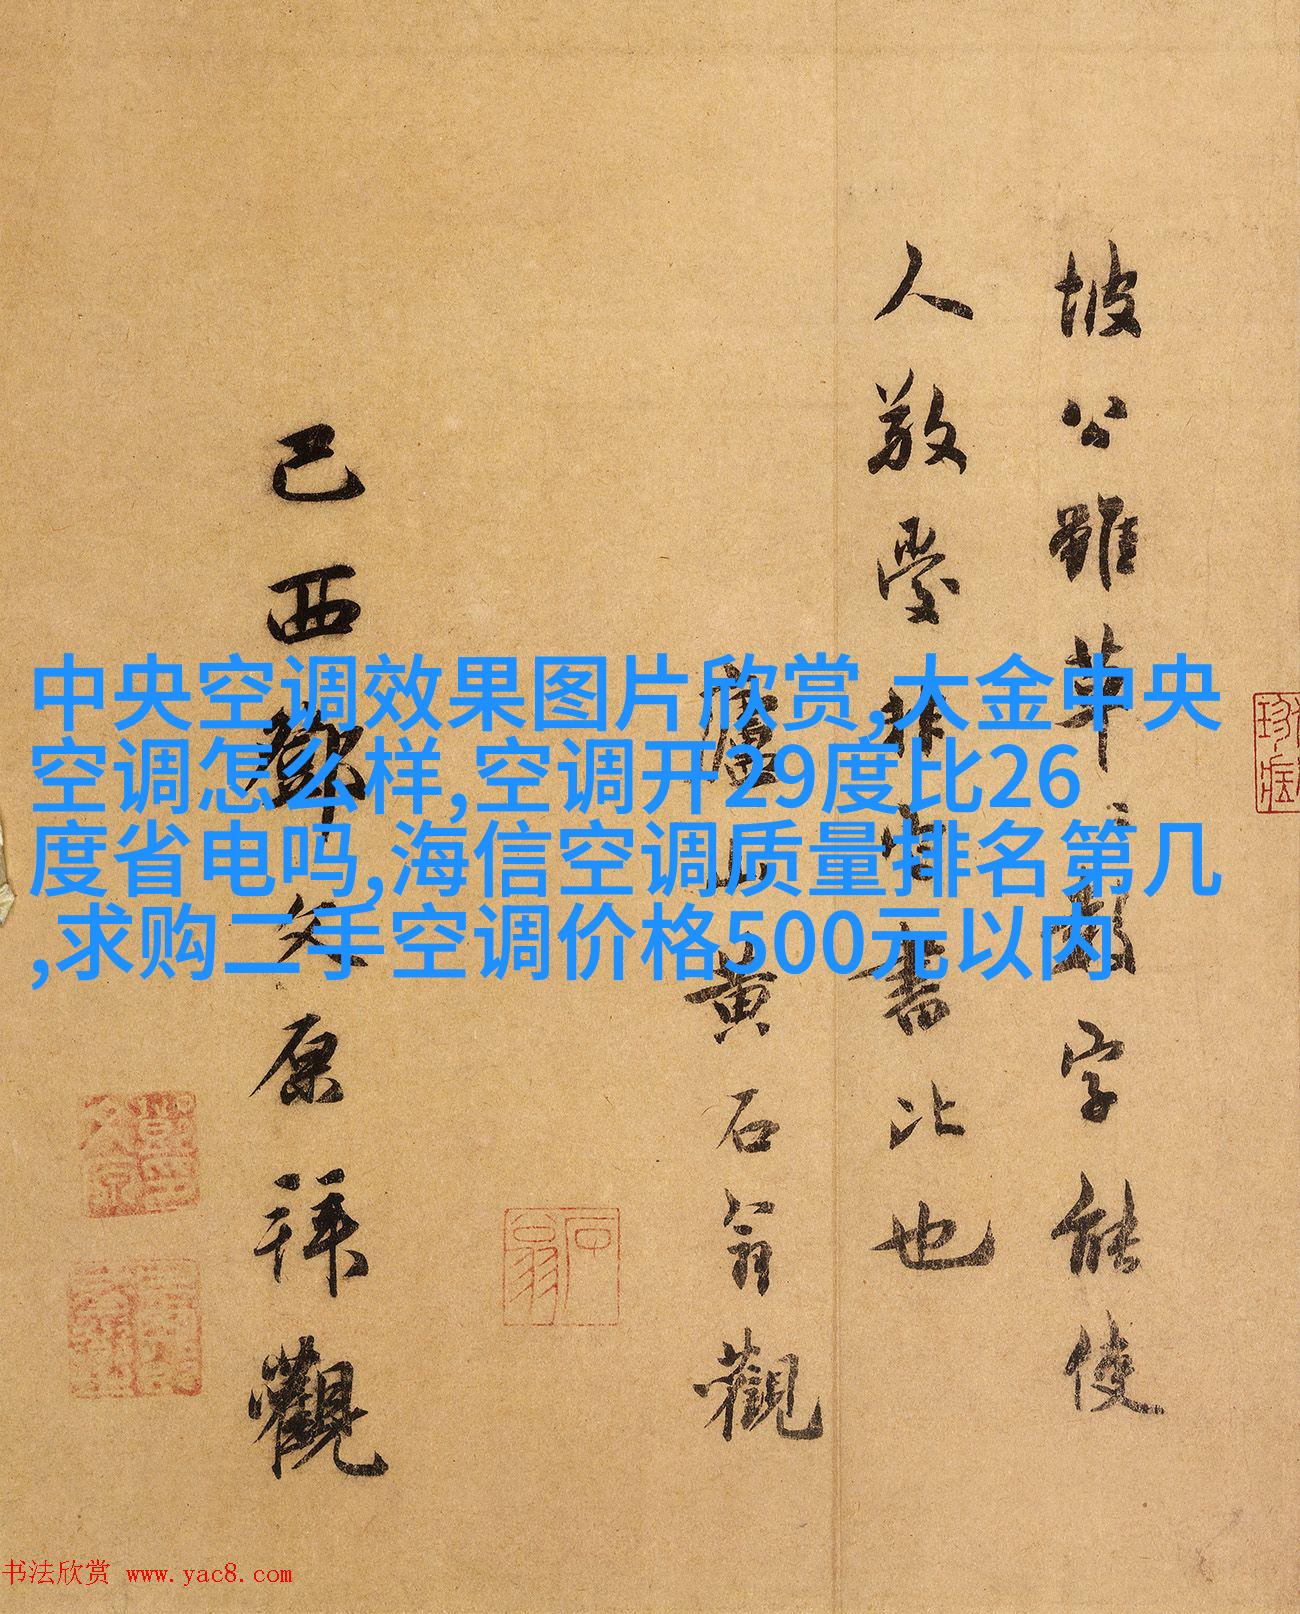 坡公雖草〻數字能使
人敬愛非它書比也
廬山黃石翁觀
石翁
己酉鄧文原拜觀
中央空调效果图片欣赏,大金中央
空调怎么样,空调开29度比26
度省电吗,海信空调质量排名第几
,求购二手空调价格500元以内
书法欣赏 www.yac8.com